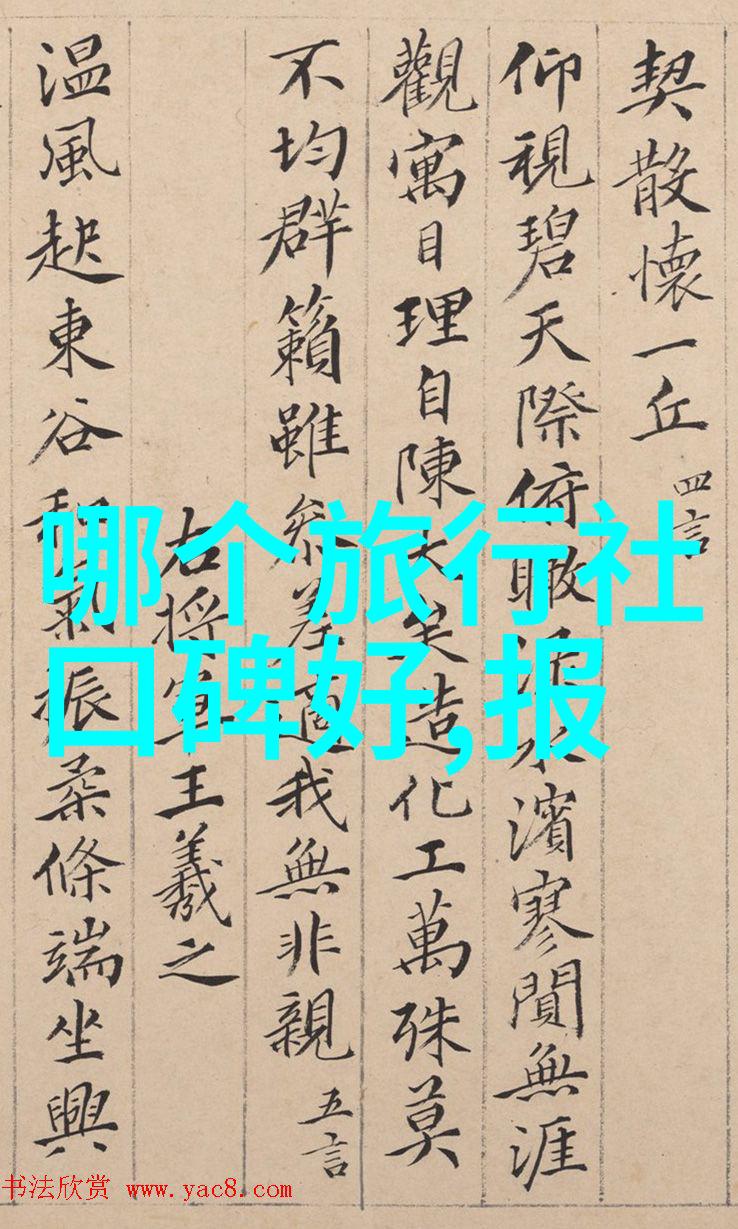 契散懷一丘 四言
仰視碧天際俯瞰淥水濱寥閴無涯
觀寓目理自陳大矣造化工萬殊莫
不均群籟雖參差適我無非親 五言
右將軍王羲之
温風起東谷和氣振柔條端坐興
哪个旅行社
口碑好,报
书法欣赏 www.yac8.com